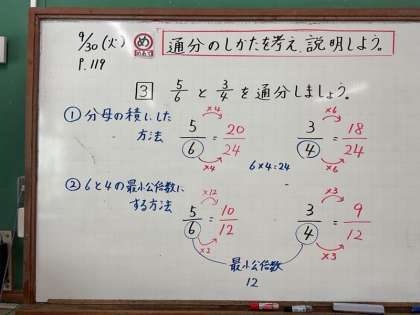 9/30(火) め 通分のしかたを考え、説明しよう。
P.119
3 5/6 と 3/4 を通分しましょう。
① 分母の積にした
方法
×4 ×6
5/6 = 20/24 3/4 = 18/24
×4 6×4=24 ×6
② 6と4の最小公倍数に
する方法
×12 ×3
5/6 = 10/12 3/4 = 9/12
×2 ×3
最小公倍数
12